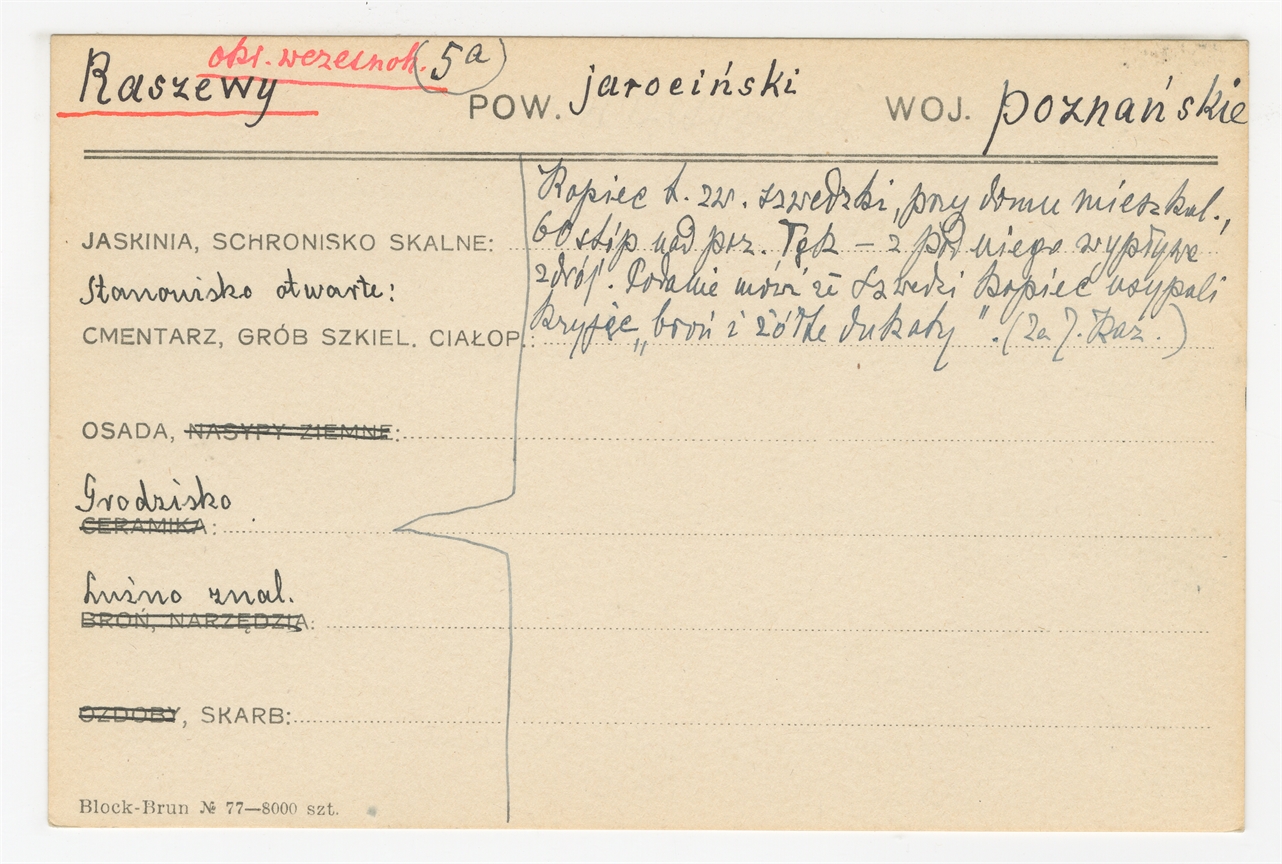 okr. wczesnoh. (5a)
Raszewy POW. jarociński WOJ. poznańskie
Kopiec t. zw. szwedzki, przy domu mieszkal.,
JASKINIA, SCHRONISKO SKALNE: 60 stóp nad poz. łąk – z pod niego wypływa
Stanowisko otwarte: zdrój. Podanie mówi że Szwedzi kopiec usypali
CMENTARZ, GRÓB SZKIEL. CIAŁOP.: kryjąc „broń i żółte dukaty". (Za J. Kaz.)
OSADA, NASYPY ZIEMNE:
Grodzisko
CERAMIKA:
Luźno znal.
BROŃ, NARZĘDZIA:
OZDOBY, SKARB:
Block-Brun № 77—8000 szt.